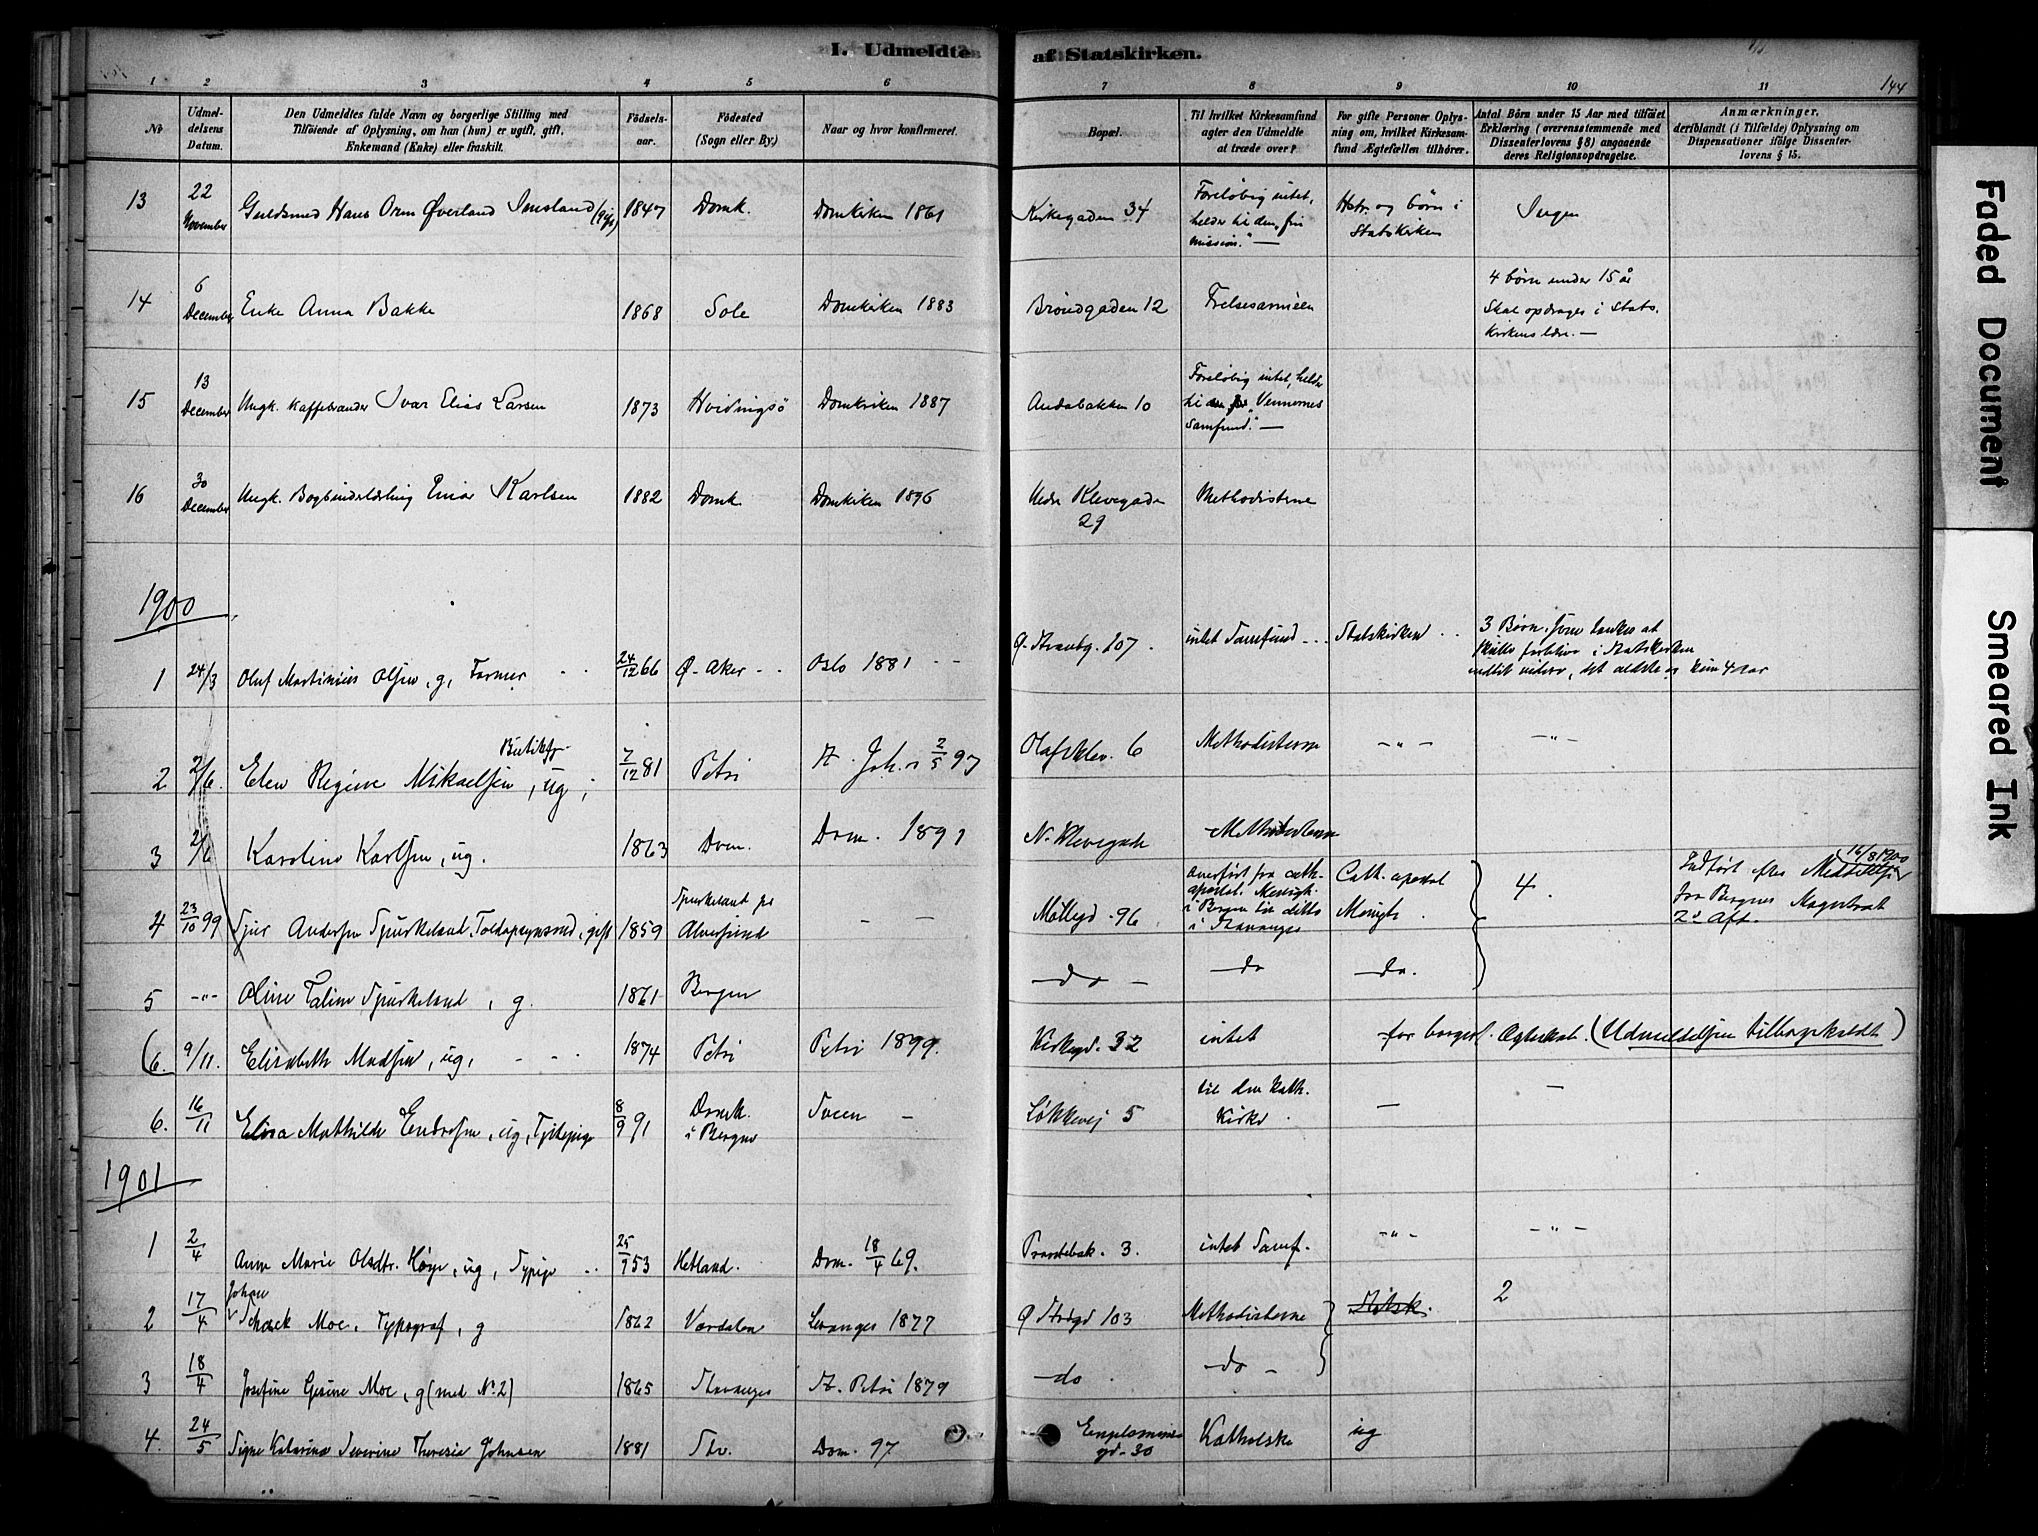 I. Udmeldte af Statskirken.
144
1 2 3 4 5 6 7 8 9 10 11
No
Udmel-
delsens
Datum.
Den Udmeldtes fulde Navn og borgerlige Stilling med
Tilföiende af Oplysning, om han (hun) er ugift, gift,
Enkemand (Enke) eller fraskilt.
Födsels-
aar.
Födested
(Sogn eller By.)
Naar og hvor konfirmeret.
Bopæl.
Til hvilket Kirkesamfund
agter den Udmeldte
at træde over?
For gifte Personer Oplys-
ning om, hvilket Kirkesam-
fund Ægtefællen tilhörer.
Antal Börn under 15 Aar med tilföiet
Erklæring (overensstemmende med
Dissenterlovens §8) angaaende
deres Religionsopdragelse.
Anmærkninger,
deriblandt (i Tilfælde) Oplysning om
Dispensationer ifölge Dissenter-
lovens § 15.
13 22 November Guldsmed Hans Orm Øverland (gift) 1847 Domk. Domkirken 1861 Kirkegaden 34 Foreløbig intet, helder til den „fri mission." — Hstr. og børn i Statskirken Ingen
14 6 December Enke Anna Bakke 1868 Sole Domkirken 1883 Brøndgaden 12 Frelsesarmeen 4 børn under 15 år Skal opdrages i Stats. kirkens lære. —
15 13 December Ungk. Kaffebrænder Ivar Elias Larsen 1873 Hvidingsö Domkirken 1887 Andabakken 10 Foreløbig intet, helder til Vennernes Samfund." —
16 30 December Ungk. Bogbinderlærling Einar Karlsen 1882 Domk. Domkirken 1896 Nedre Klevegade 29 Methodisterne
1900
1 24/3 Oluf Martinius Olsen, g, Farmer 24/12 66 Ø. Aker Oslo 1881 Ø. Strandg. 107. intet Samfund Statskirken 3 Børn. Som tænkes at skulle forblive i Statskirken indtil videre, det ældste er kun 4 Aar
2 2/6 Elen Regine Mikaelsen, ug, Butikfr. 7/12 81 Petri St. Joh. 2/5 97 Olafsklev. 6 Methodisterne — " — — " —
3 2/6 Karoline Karlsen, ug. 1863 Dom. Dom. 1891 N. Klevegade Methodisterne
4 23/10 99 Sjur Andersen Spurkeland, Toldopsynsmd, gift 1859 Spurkeland pr Alversund — — Møllegd. 96 overført fra cath. apostol. Menigh. i Bergen til ditto i Stavanger Cath. apostol Menigh. 4. Indført efter Meddelelse 16/8 1900 fra Bergens Magistrat 2d Afd.
5 — " — Oline Taline Spurkeland, g. 1861 Bergen — do — — do — do.
(6. 9/11. Elisabeth Madsen, ug, 1874 Petri Petri 1899. Kirkegd. 32 intet for borgerl. Ægteskab. (Udmeldelsen tilbagekaldt)
6. 16/11 Elisa Mathilde Endresen, ug, Tjenestepige 8/9 91 Domk. i Bergen — Løkkevej 5 til den kath. Kirke — —
1901
1 2/4 Anna Marie Olsdtr. Høye, ug, Sypige 25/9 53 Hetland. Dom. 18/4 69. Prostebak. 3. intet Samf. — " — — " —
2 17/4 Johan Schack Moe, Typograf, g 1862 Værdalen Levanger 1877 Ø Strdgd 103 Methodisterne Statsk. 2
3 18/4 Josefine Gesine Moe, g (med No. 2) 1865 Stavanger St. Petri 1879 — do — do —
4. 24/5 Signe Katarina Severine Theresia Johnsen 1881 Stv. Dom. 97 Engelsminde gd. 30 Katholske ug
Faded Document
Smeared Ink